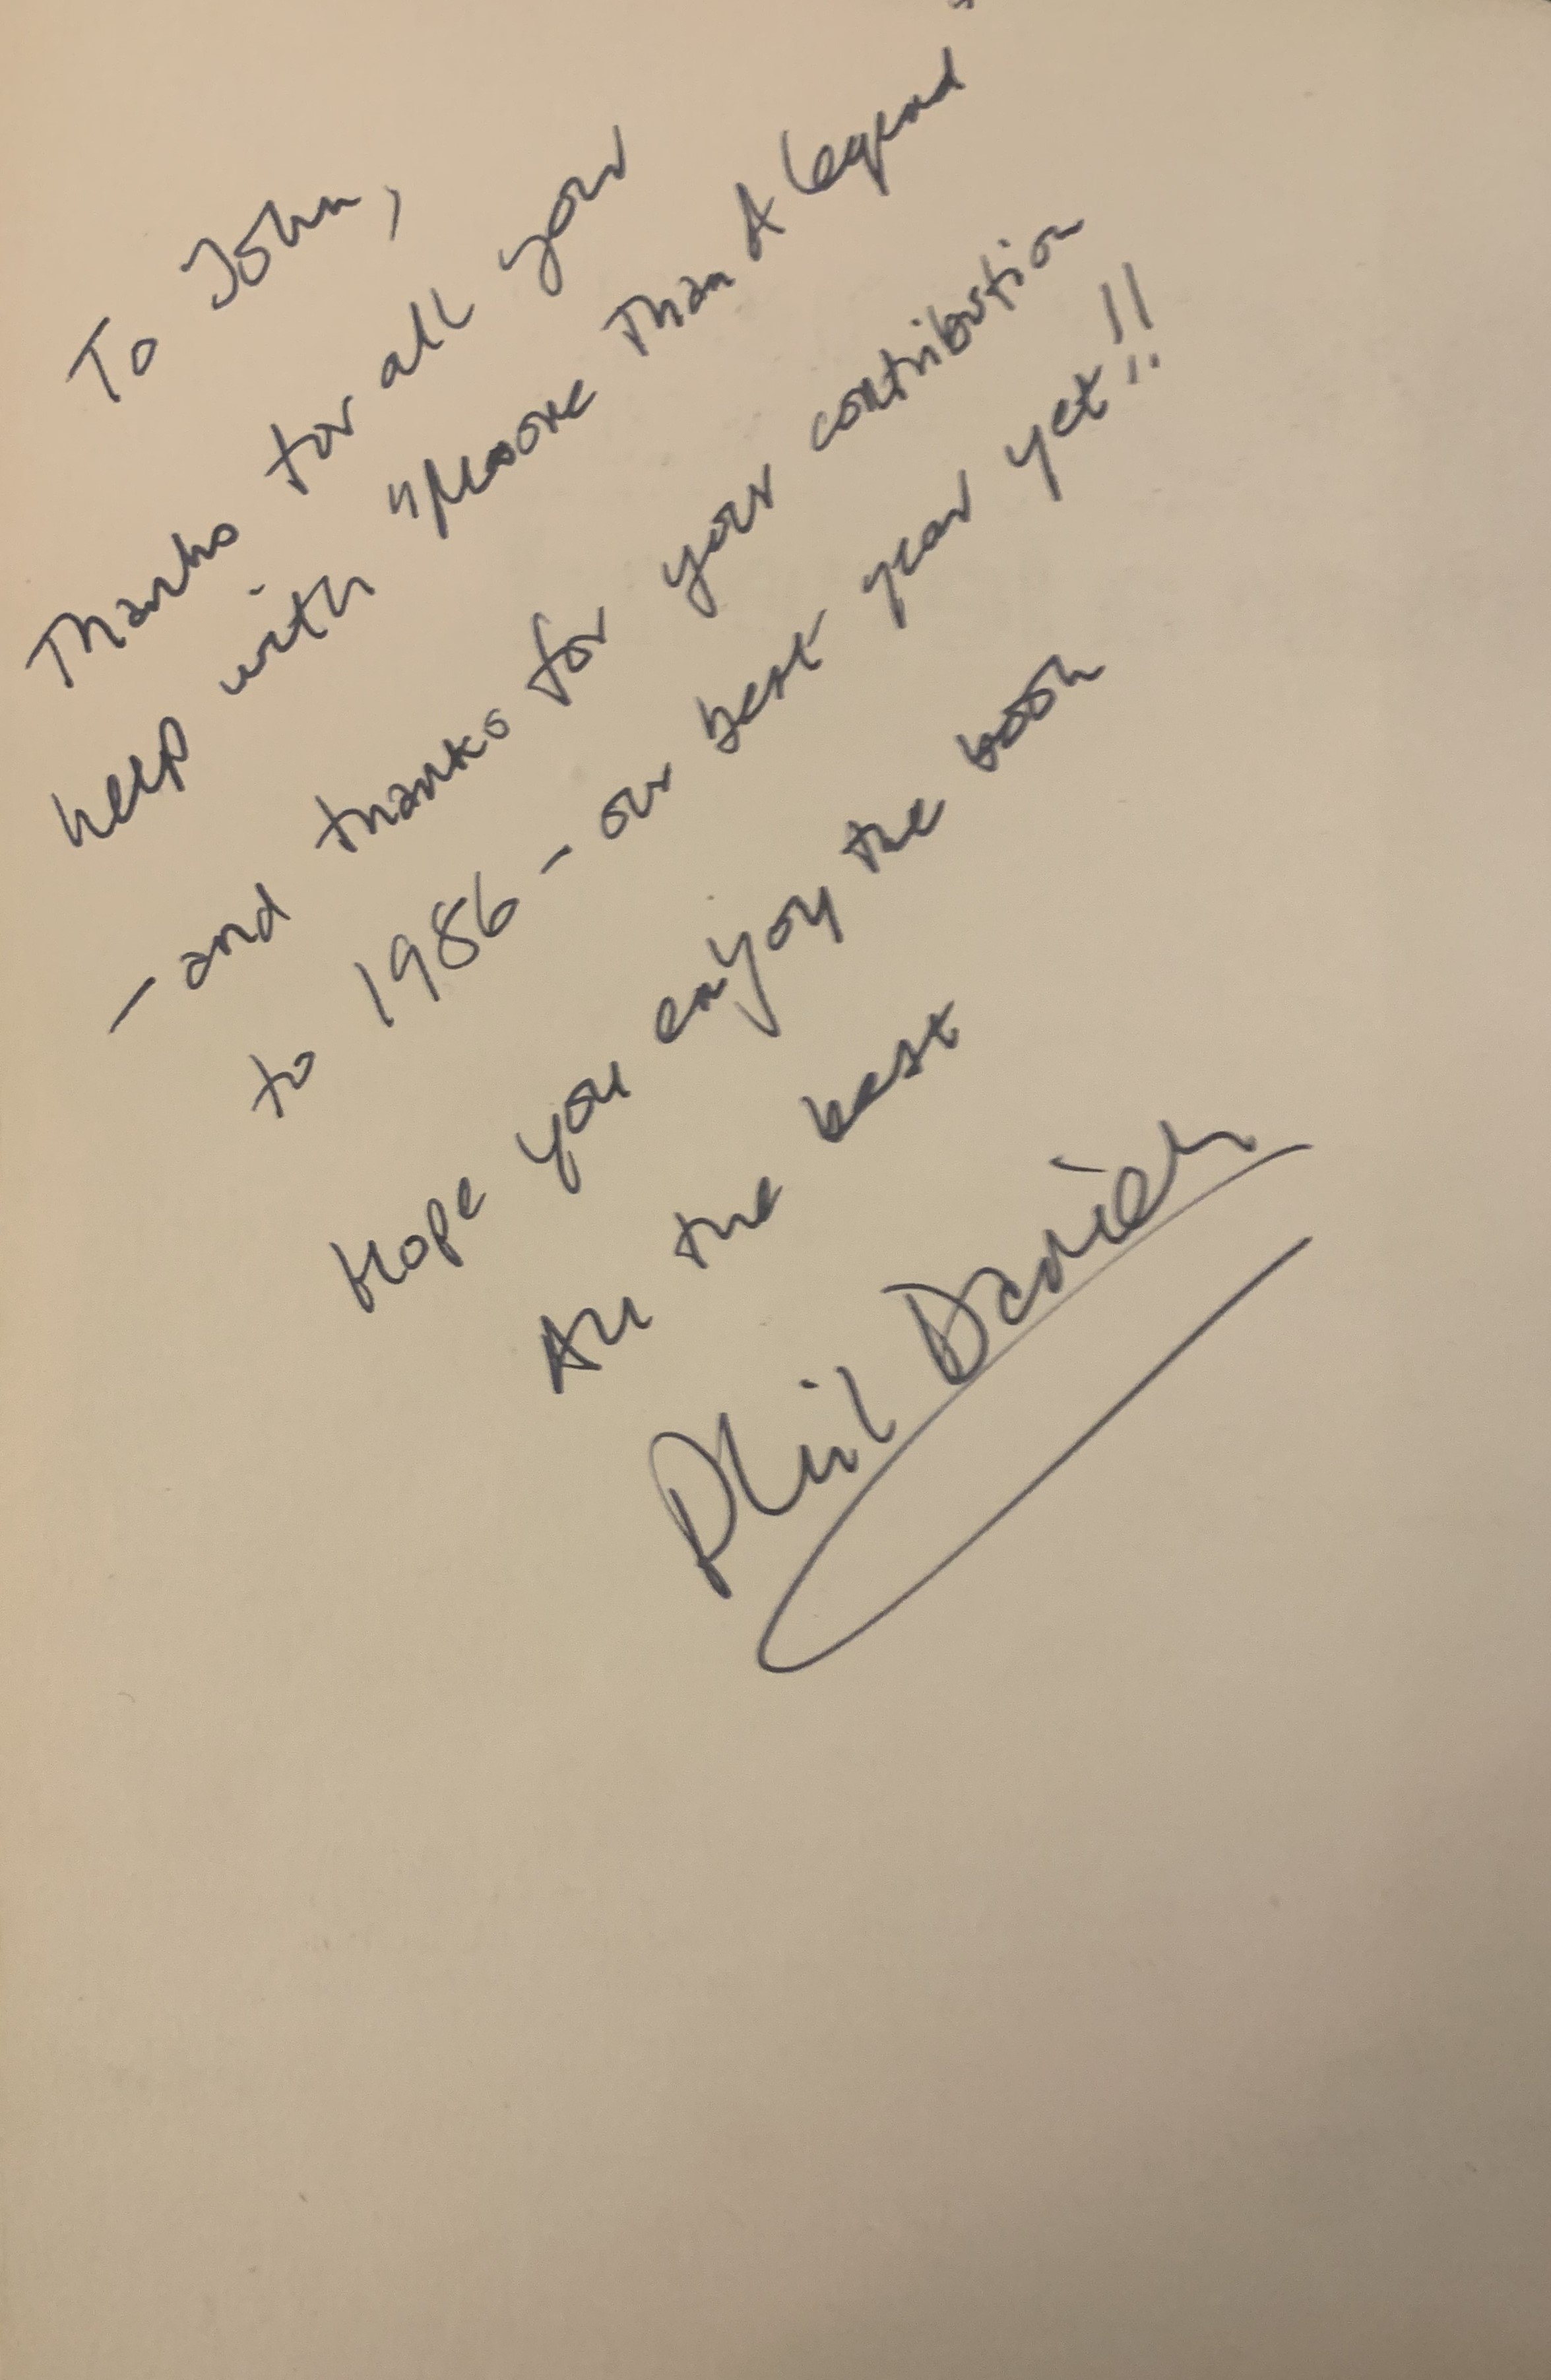 To John,
Thanks for all your
help with "Moore Than A Legend"
- and thanks for your contribution
to 1986 - our best year yet!!
Hope you enjoy the book
All the best
Phil Daniels